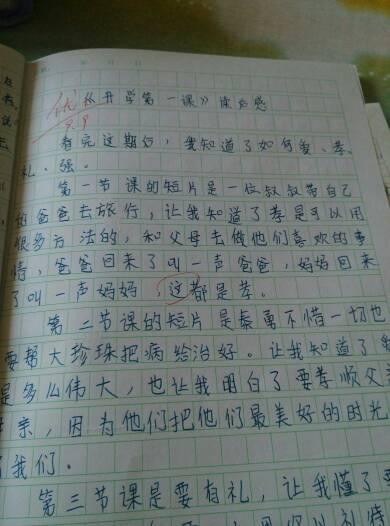 优
9.9
《开学第一课》读后感
看完这期后，我知道了如何爱、孝、
礼、强。
第一节课的短片是一位叔叔带自己
的爸爸去旅行，让我知道了孝是可以用
很多方法的，和父母去做他们喜欢的事
情，爸爸回来了叫一声爸爸，妈妈回来
了叫一声妈妈，这都是孝。
第二节课的短片是秦勇不惜一切也
要帮大珍珠把病给治好。让我知道了
是多么伟大，也让我明白了要孝顺父
亲，因为他们把他们最美好的时光
了我们。
第三节课是要有礼，让我懂了要